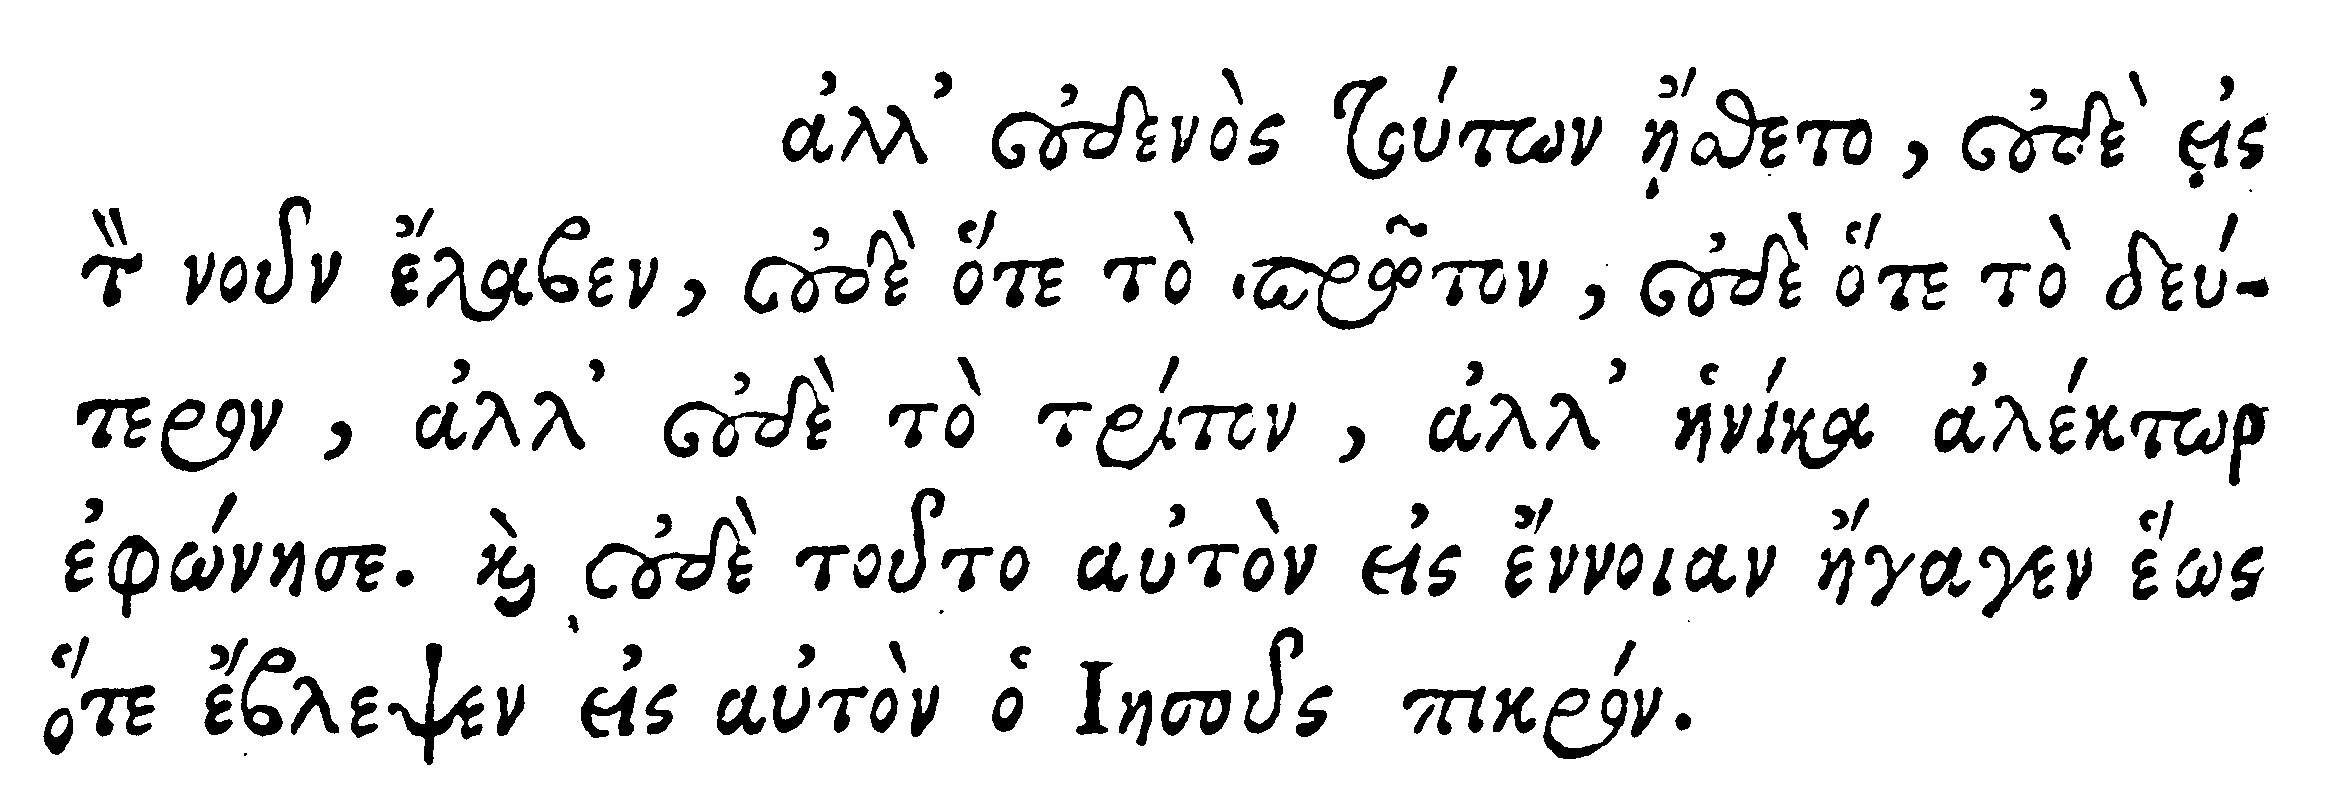 ἀλλ’ οὐδενὸς τούτων ᾔσθετο, οὐδὲ εἰς
τὸν νοῦν ἔλαβεν, οὐδὲ ὅτε τὸ πρῶτον, οὐδὲ ὅτε τὸ δεύ-
τερον, ἀλλ’ οὐδὲ τὸ τρίτον, ἀλλ’ ἡνίκα ἀλέκτωρ
ἐφώνησε. καὶ οὐδὲ τοῦτο αὐτὸν εἰς ἔννοιαν ἤγαγεν ἕως
ὅτε ἔβλεψεν εἰς αὐτὸν ὁ Ιησοῦς πικρόν.